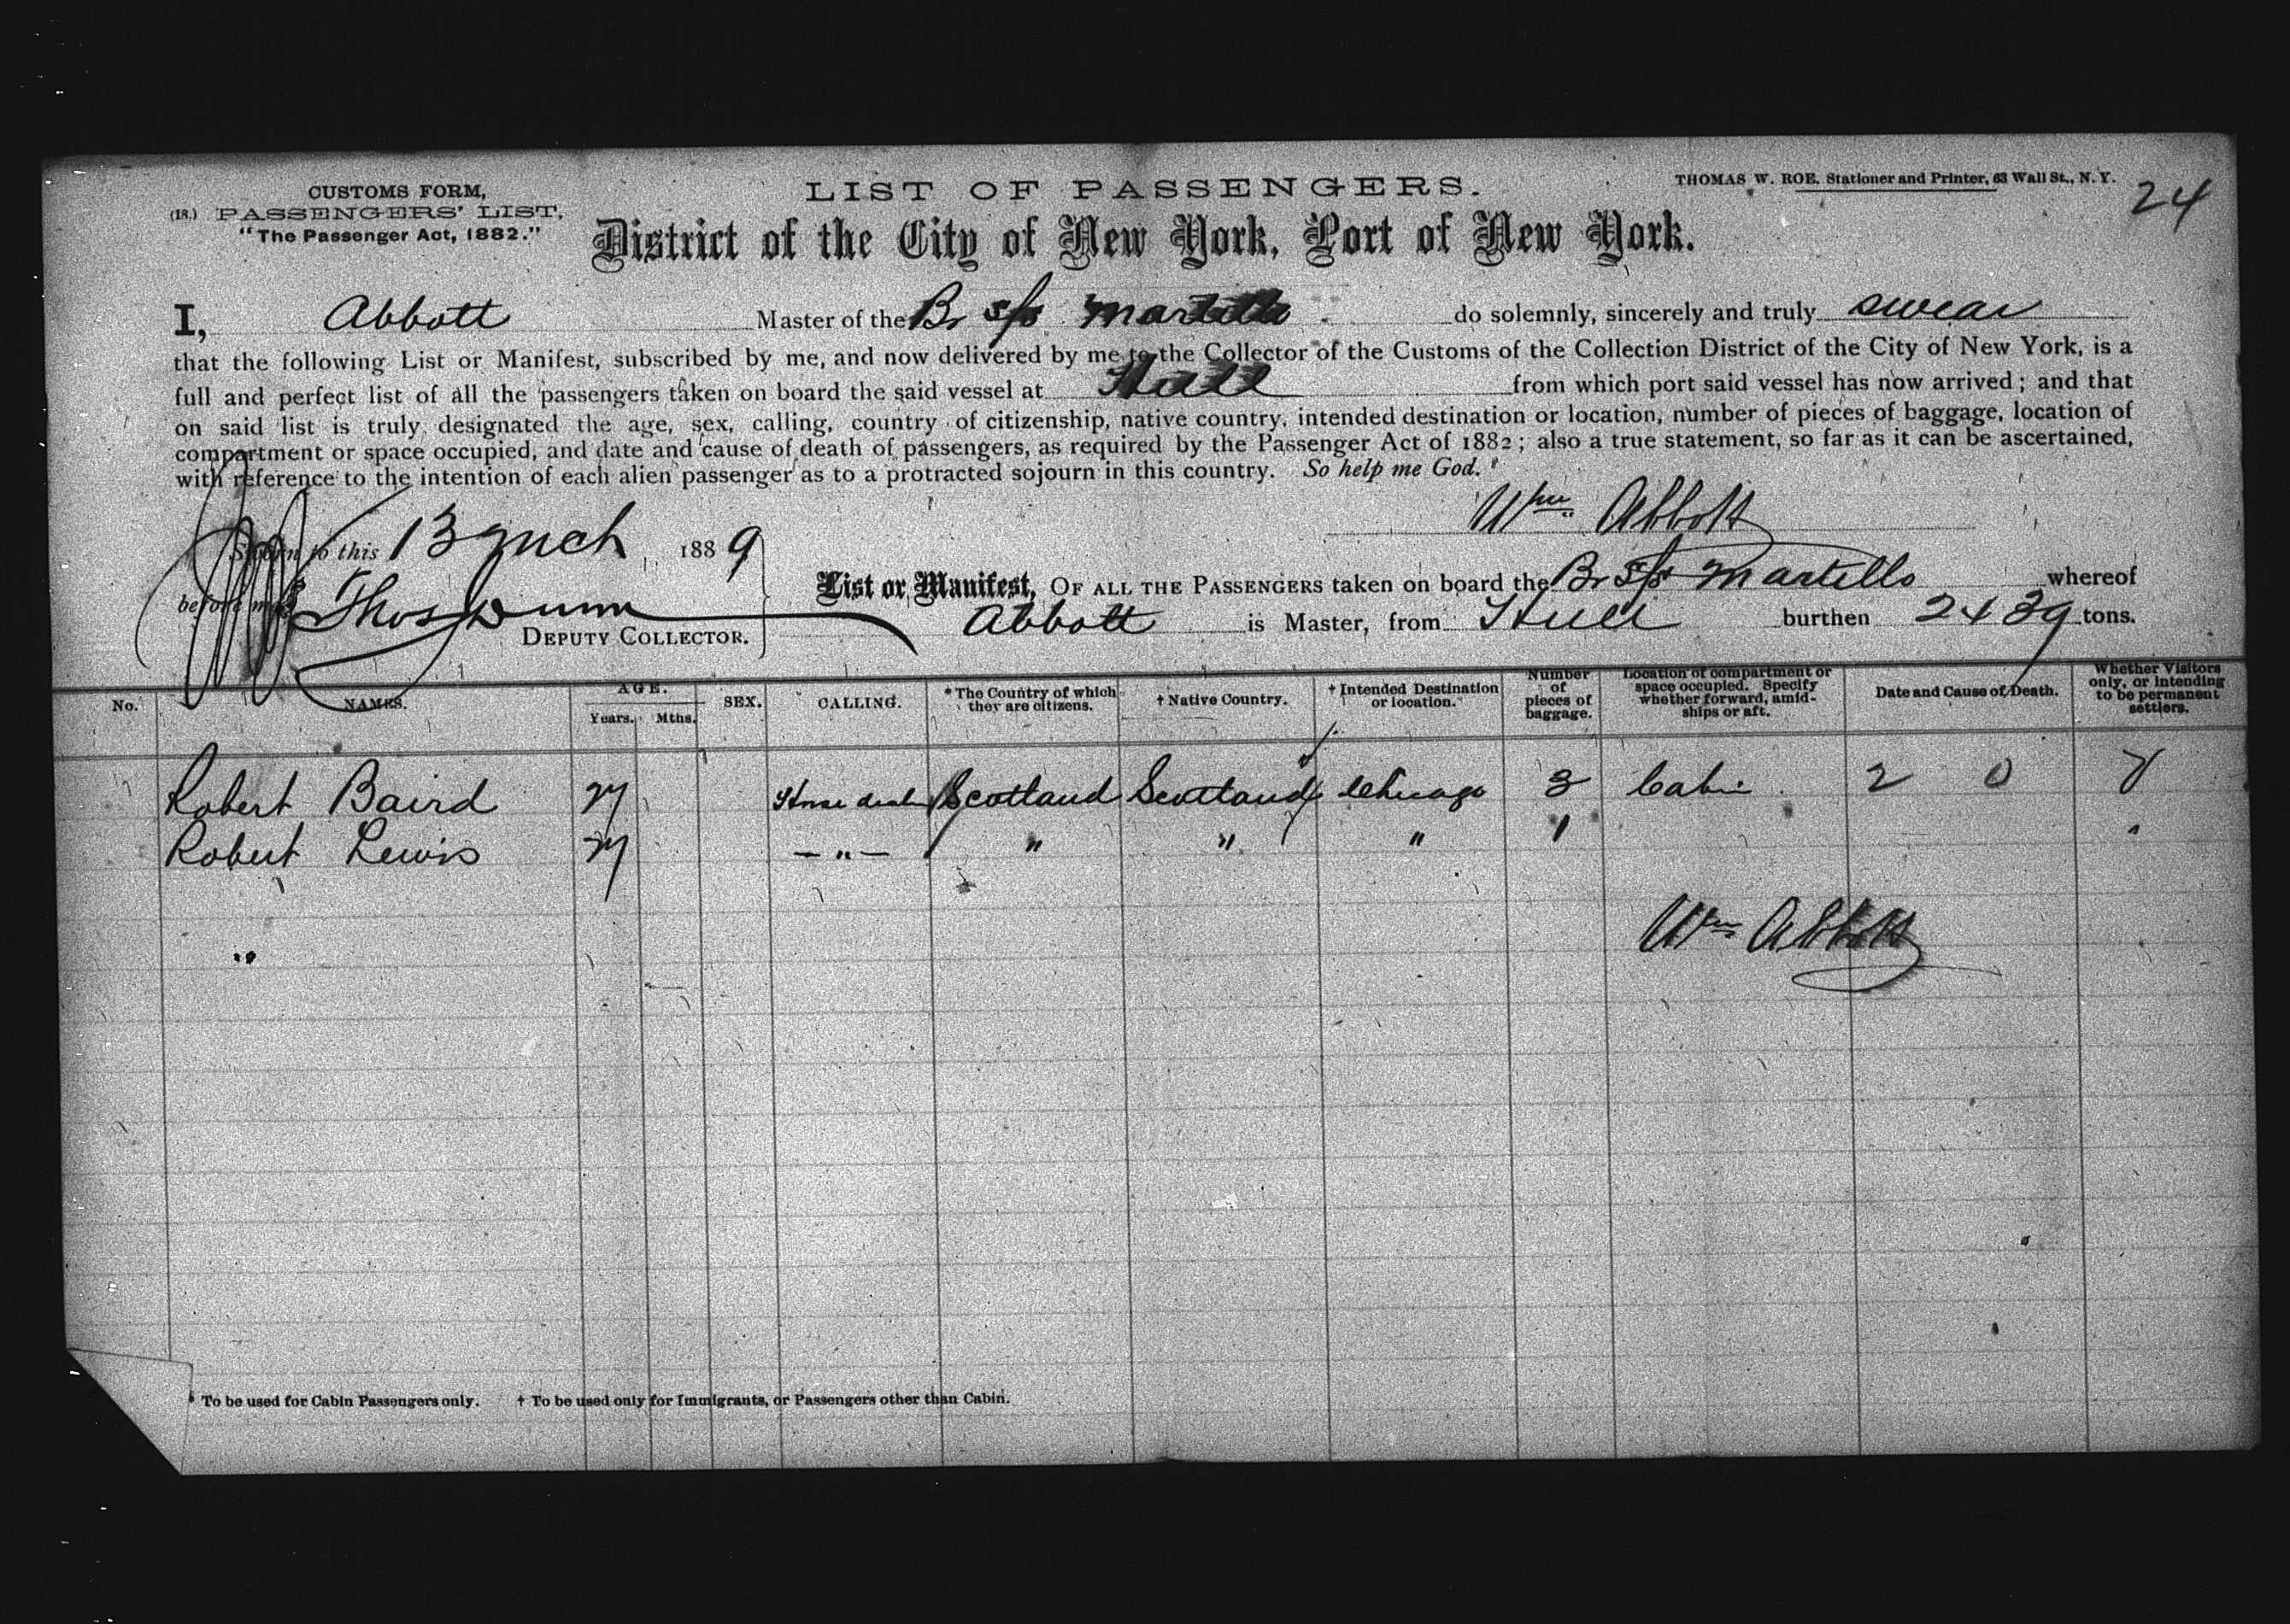 CUSTOMS FORM,
(18.) PASSENGERS' LIST,
"The Passenger Act, 1882."
LIST OF PASSENGERS.
THOMAS W. ROE, Stationer and Printer, 63 Wall St., N.Y.
24
District of the City of New York, Port of New York.
I, Abbott Master of the Br s/s Martello do solemnly, sincerely and truly swear
that the following List or Manifest, subscribed by me, and now delivered by me to the Collector of the Customs of the Collection District of the City of New York, is a
full and perfect list of all the passengers taken on board the said vessel at Hull from which port said vessel has now arrived; and that
on said list is truly designated the age, sex, calling, country of citizenship, native country, intended destination or location, number of pieces of baggage, location of
compartment or space occupied, and date and cause of death of passengers, as required by the Passenger Act of 1882; also a true statement, so far as it can be ascertained,
with reference to the intention of each alien passenger as to a protracted sojourn in this country. So help me God.
Wm Abbott
Sworn to this 13 Mch 1889
before me Thos Dunn
DEPUTY COLLECTOR.
List or Manifest, OF ALL THE PASSENGERS taken on board the Br s/s Martello whereof
Abbott is Master, from Hull burthen 2439 tons.
No. NAMES. AGE. Years. Mths. SEX. CALLING. * The Country of which they are citizens. † Native Country. † Intended Destination or location. Number of pieces of baggage. Location of compartment or space occupied. Specify whether forward, amidships or aft. Date and Cause of Death. Whether Visitors only, or intending to be permanent settlers.
Robert Baird Horse dealer Scotland Scotland Chicago 3 Cabin 2 0
Robert Lewis — " — " " " 1 "
Wm Abbott
* To be used for Cabin Passengers only. † To be used only for Immigrants, or Passengers other than Cabin.